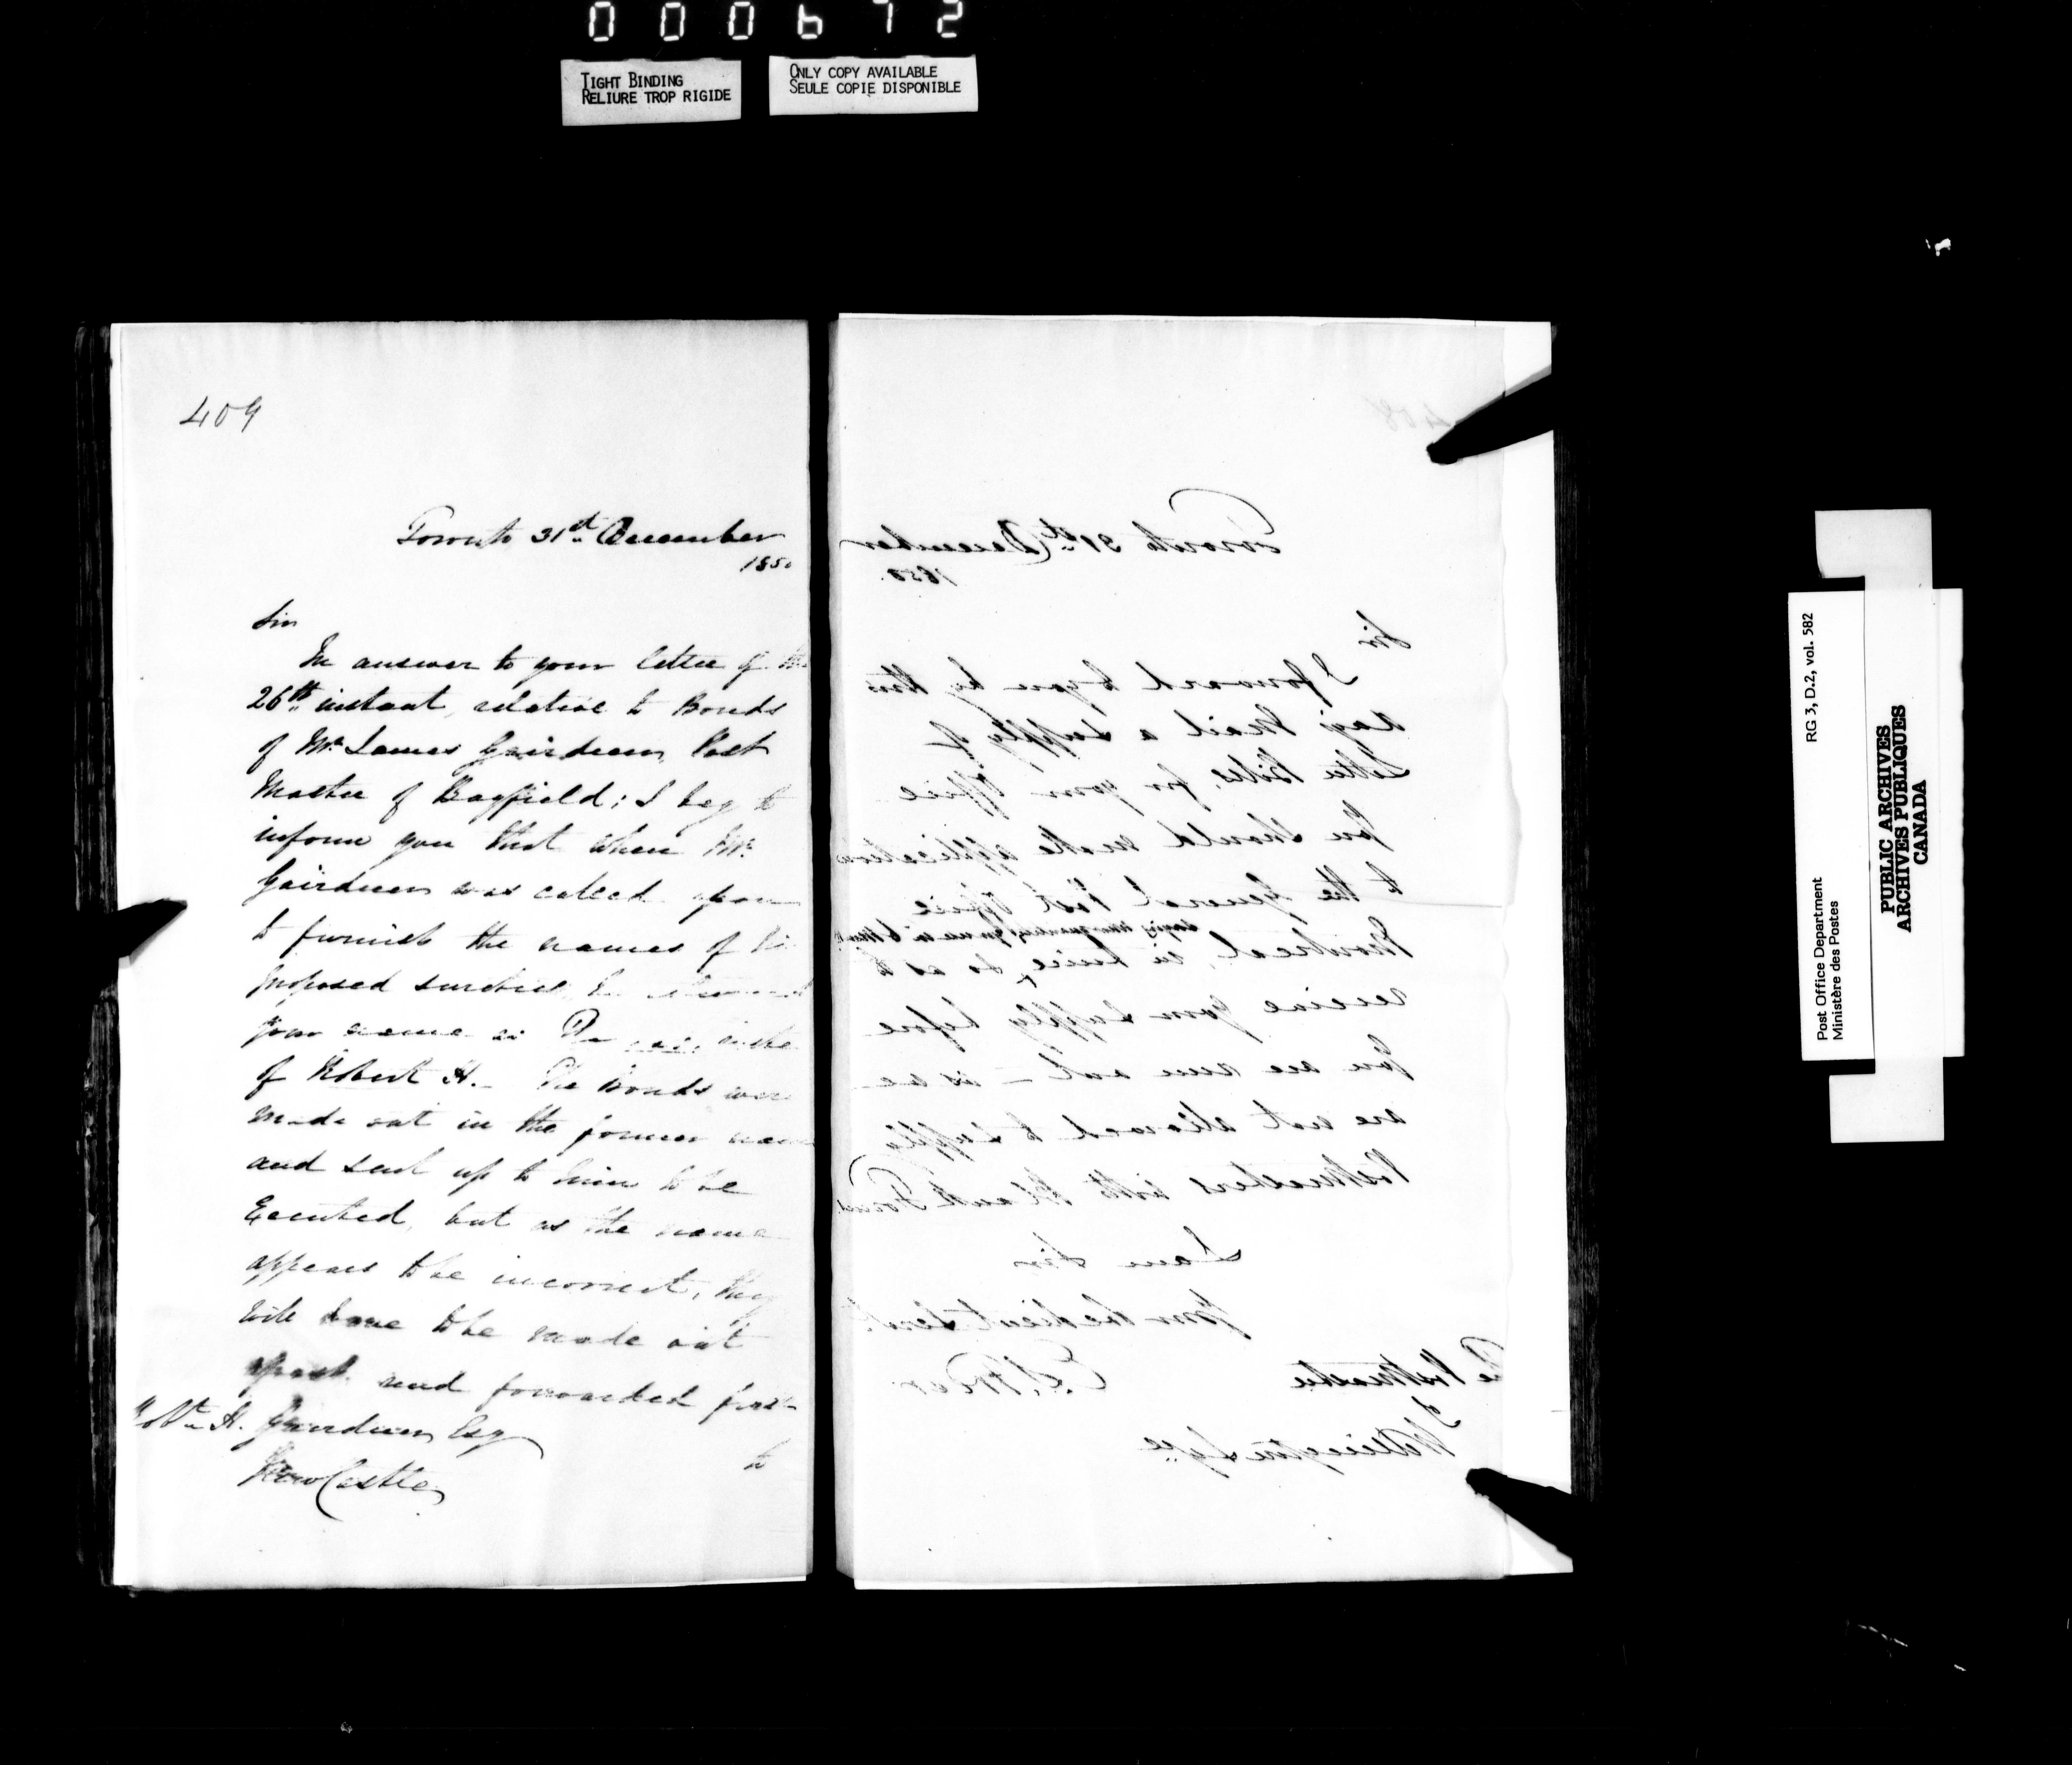 000672
TIGHT BINDING
RELIURE TROP RIGIDE
ONLY COPY AVAILABLE
SEULE COPIE DISPONIBLE
409
Toronto 31st December
1850
Sir
In answer to your letter of the
26th instant, relative to Bonds
of Mr James Gairdner, Post
Master of Bayfield; I beg to
inform you that when Mr
Gairdner was called upon
to furnish the names of his
proposed sureties, he
your name as
of Robert H. - The Bonds were
made out in the former name
and sent up to him to be
Executed, but as the name
appears to be incorrect, they
will have to be made out
and forwarded
to
Robt H. Gairdner, Esq
New Castle
408
Toronto 31st December
1850.
Sir
I forward to you by this
days Mail a supply of
Letter Bills, for your Office
You should make application
to the General Post Office
Montreal, in time, so as to
receive your supply before
You are run out - as we
are not allowed to supply
Postmasters with Blank Forms
I am Sir
Your Obedient Servt
E.S. Freer
The Postmaster
Wellington Sqre
RG 3, D.2, vol. 582
Post Office Department
Ministère des Postes
PUBLIC ARCHIVES
ARCHIVES PUBLIQUES
CANADA